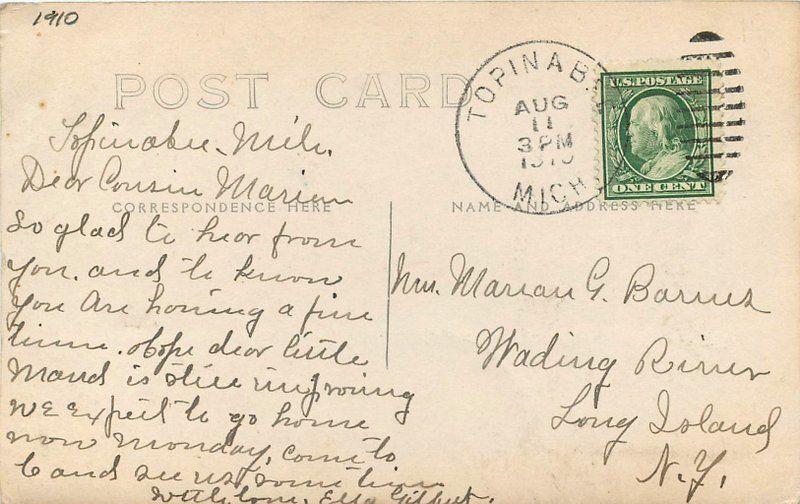 1910
POST CARD
TOPINAB
AUG
11
3 PM
1910
MICH
U.S. POSTAGE
ONE CENT
Topinabee. Mich.
Dear Cousin Marian
CORRESPONDENCE HERE
So glad to hear from
you. and to know
you are having a fine
time. Hope dear little
Maud is still improving
We Expect to go home
now Monday, come to
and see us sometime
With love, Ella Gilbert.
NAME AND ADDRESS HERE
Mrs. Marian G. Barnes
Wading River
Long Island
N.Y.